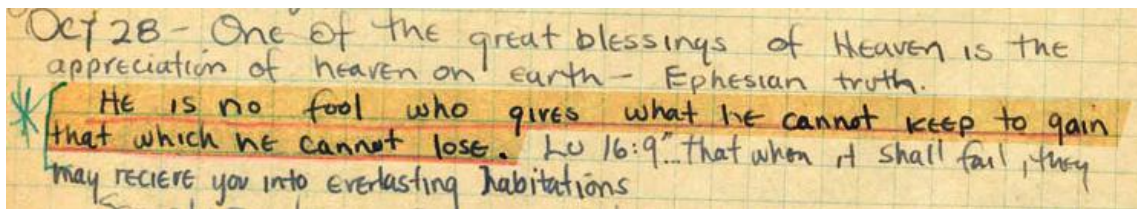 Oct 28 - One of the great blessings of Heaven is the
appreciation of heaven on earth - Ephesian truth.
He is no fool who gives what he cannot keep to gain
that which he cannot lose. Lu 16:9 "that when it shall fail, they
may reciere you into everlasting habitations